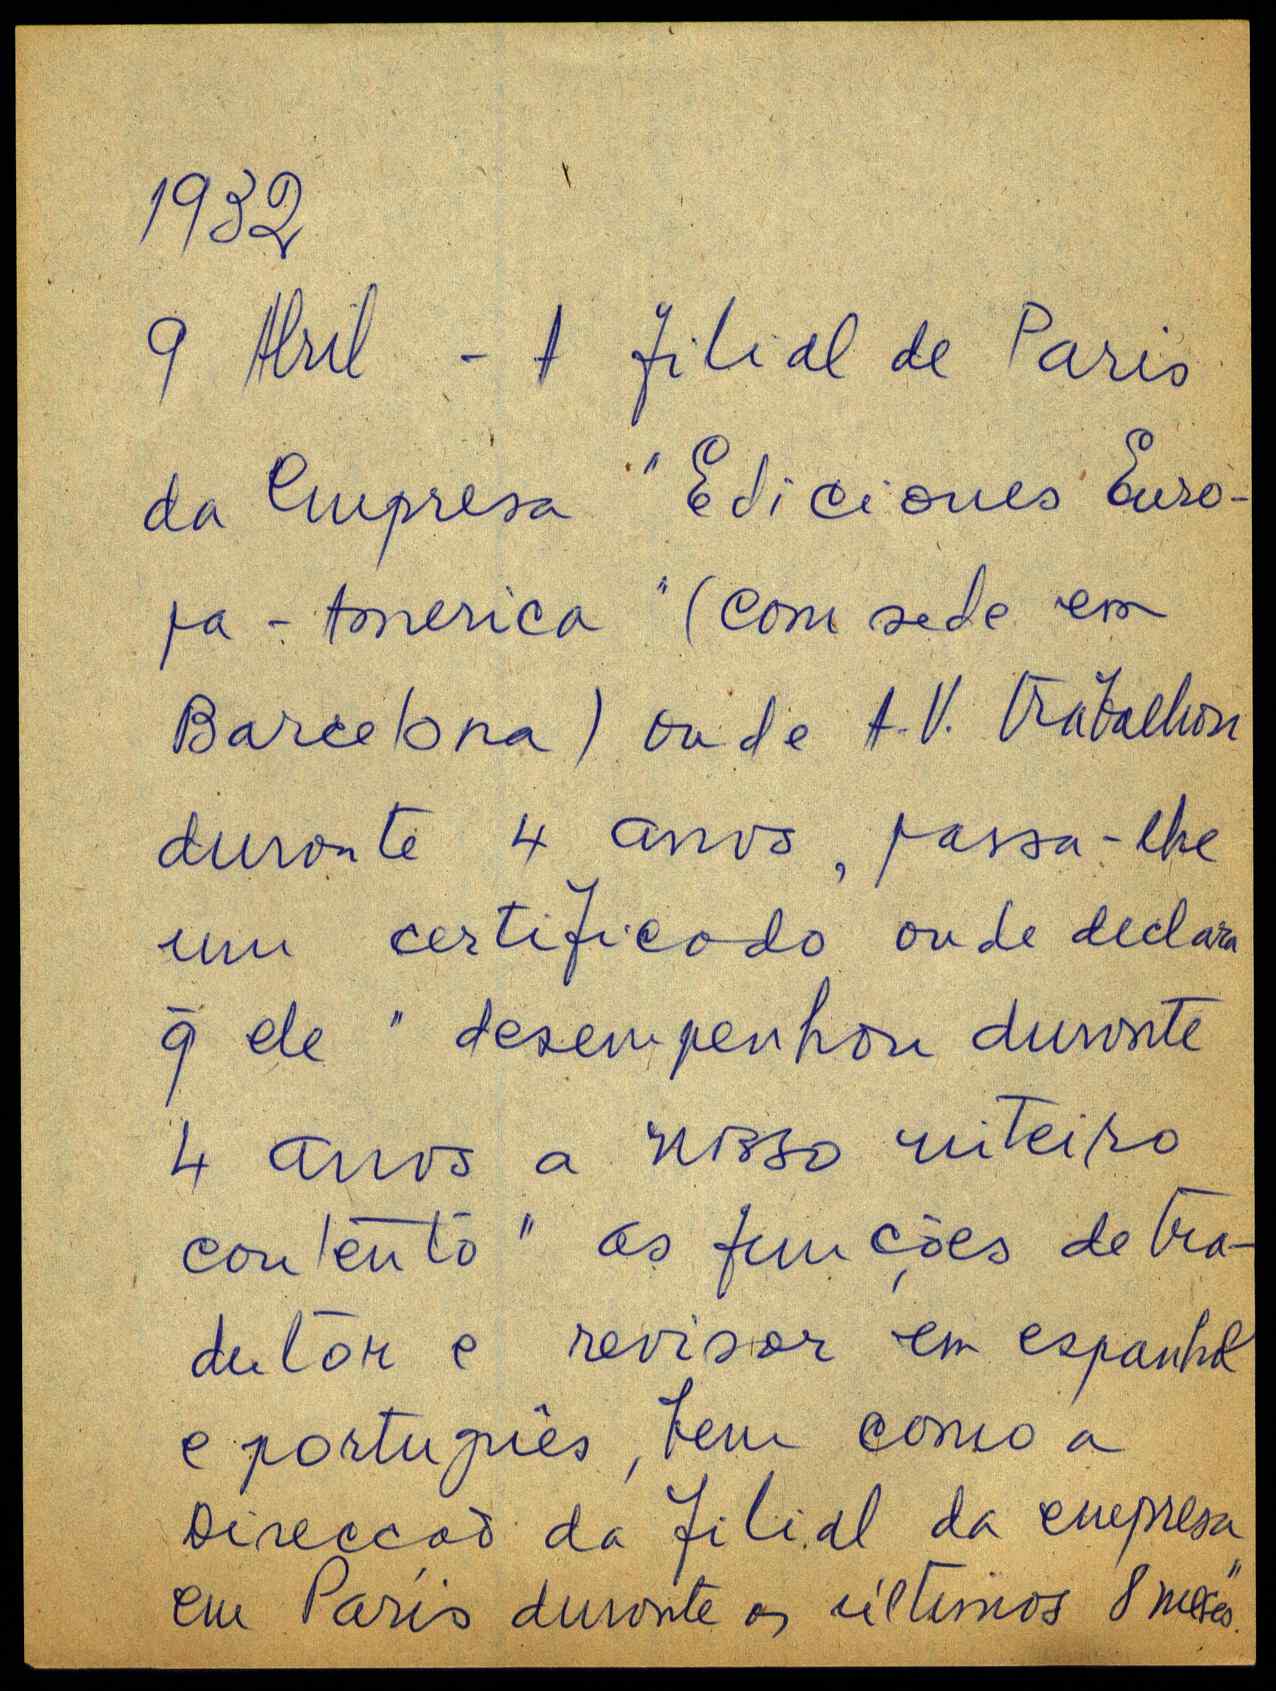 1932
9 Abril - A filial de Paris
da Empresa "Ediciones Euro-
pa-America" (com sede em
Barcelona) onde A.V. trabalhou
durante 4 anos, passa-lhe
um certificado onde declara
q̄ ele "desempenhou durante
4 anos a nosso inteiro
contento" as funções de tra-
dutor e revisor em espanhol
e português, bem como a
Direccão da filial da empresa
em Paris durante os últimos 8 meses".